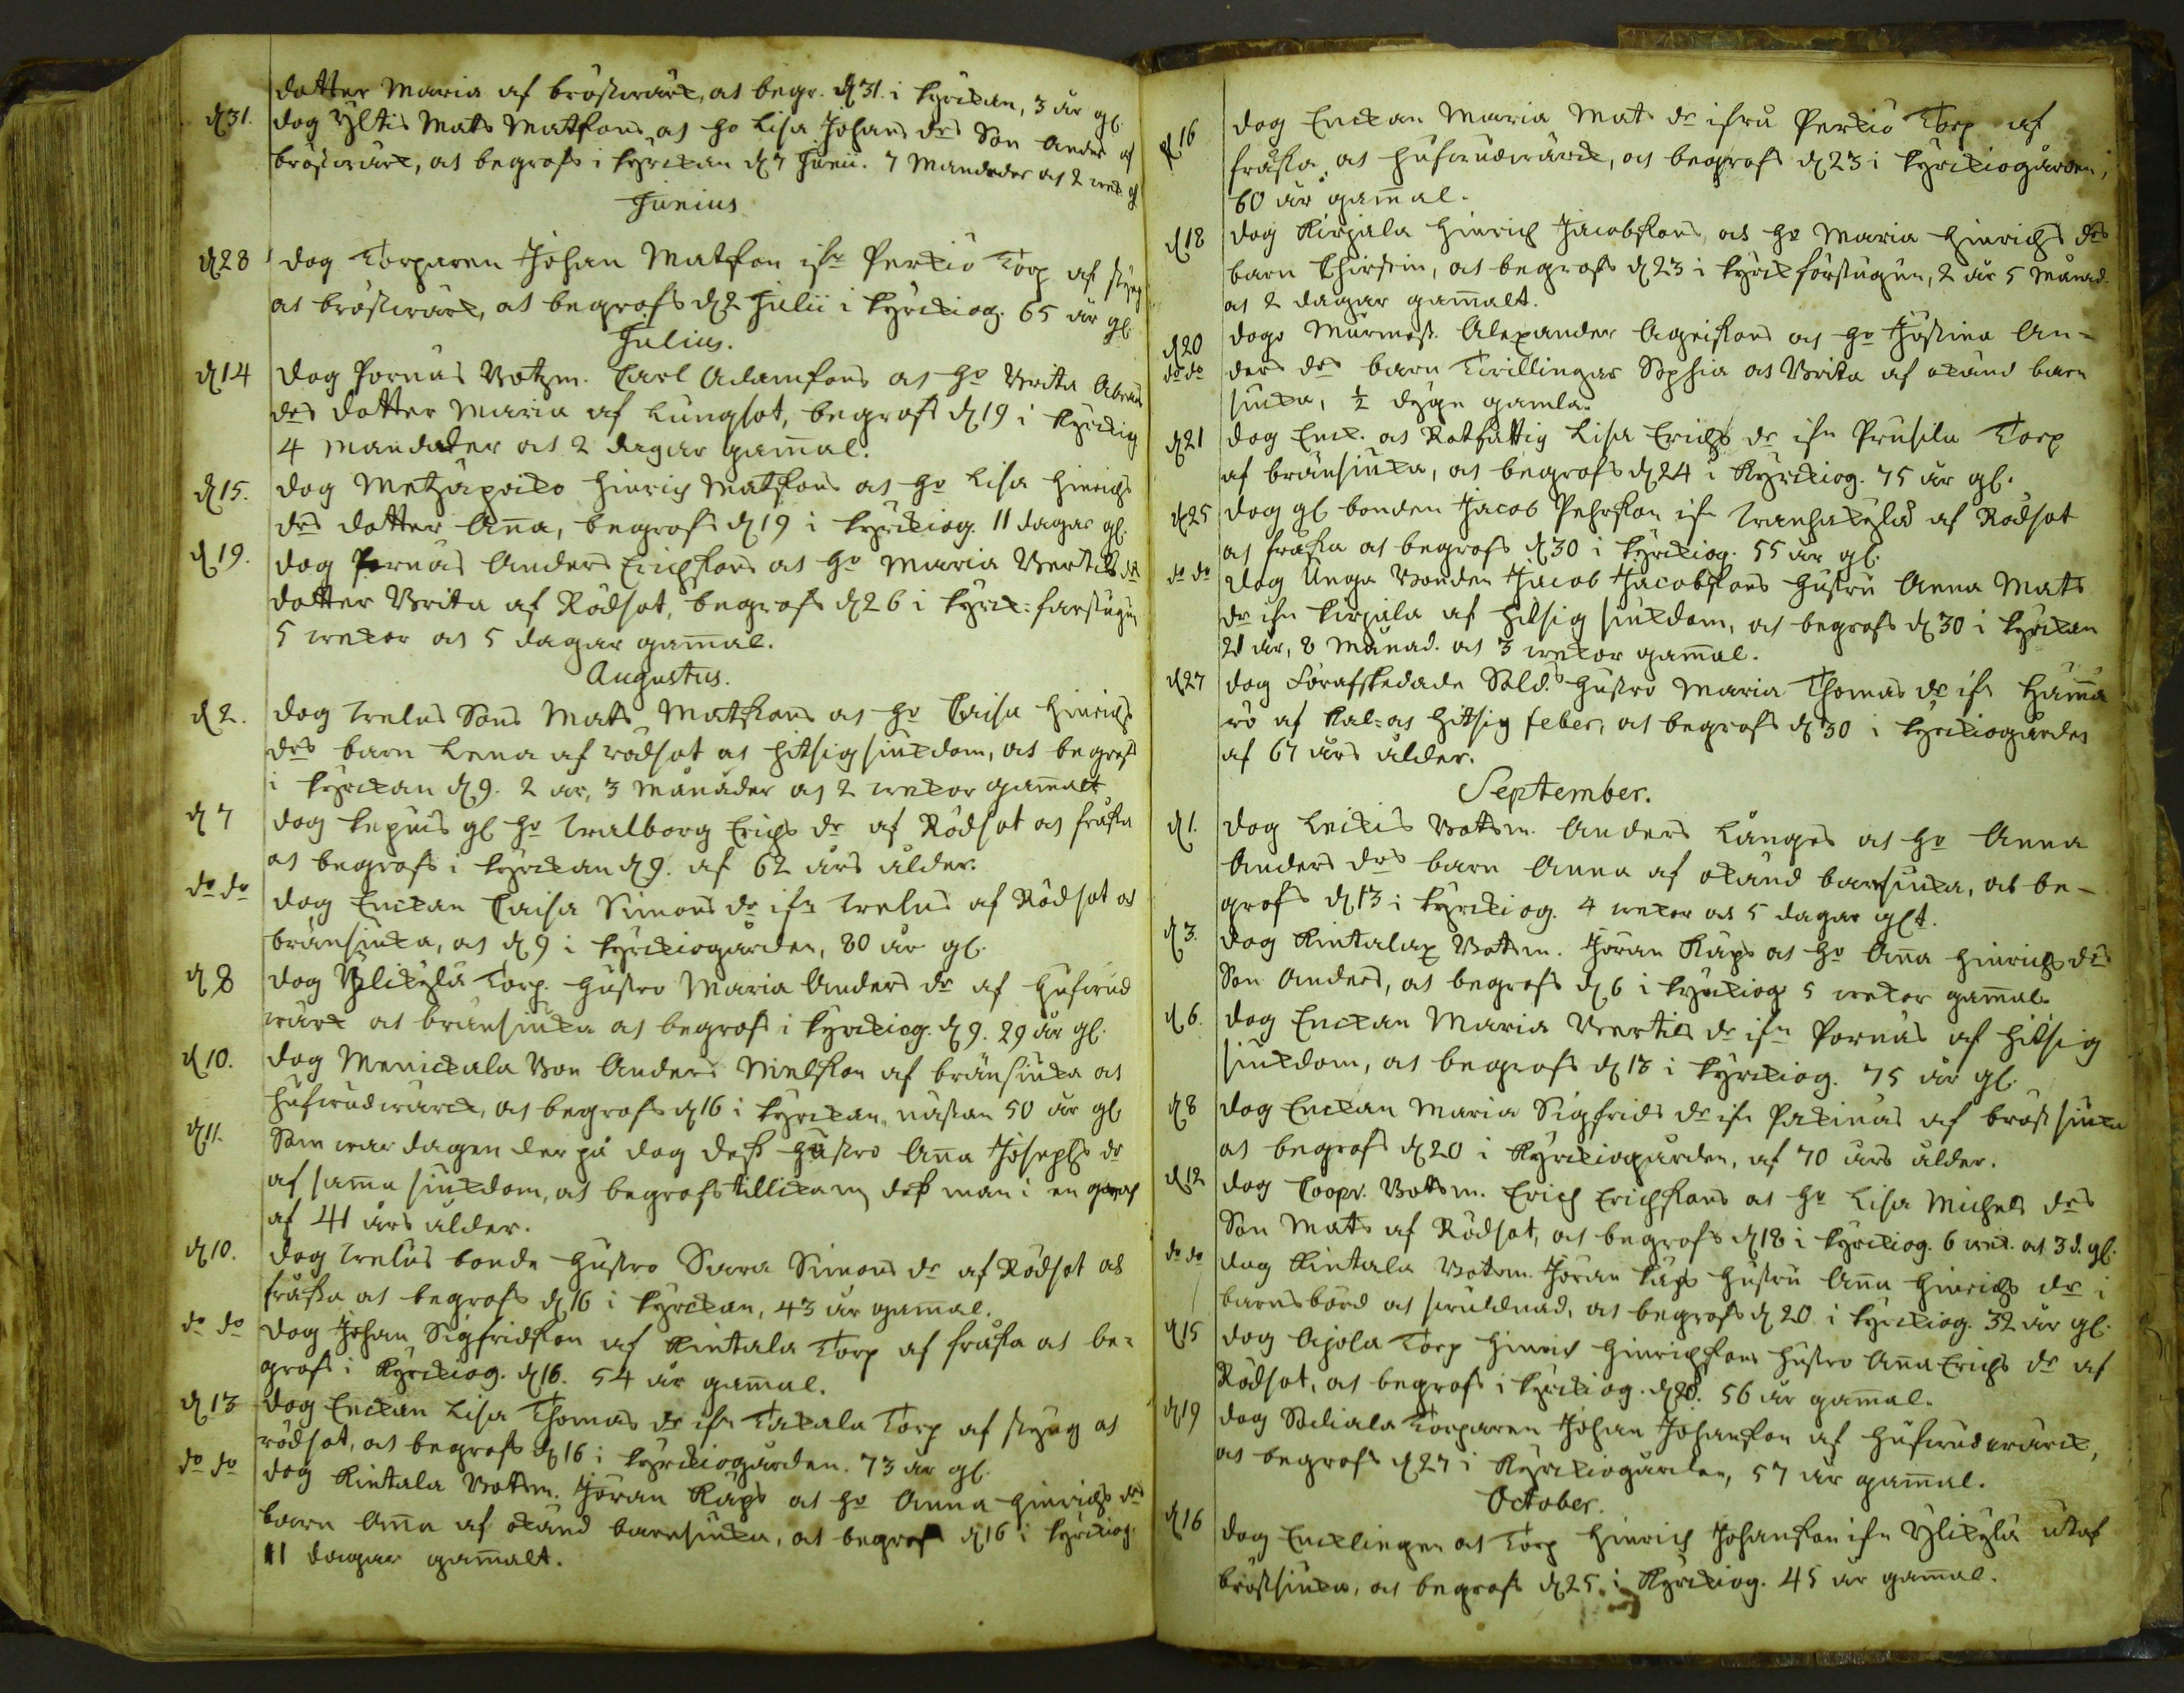 dotter Maria af bröstwärk, at begr. d 31. i kyrckan, 3 år gl.
d 31. dog Yltis Mats Matssons at ho Lisa Johans drs Son Anders af
bröstwärk, at begrofs i kyrckan d 7 Junii. 7 Månader at 2 wek gl
Junius
d 28 dog Torparen Johan Matsson ifr Perkiö Torp af styng
at bröstwärk, at begrofs d 2 Julii i kyrckiog. 65 år gl.
Julius.
d 14 dog Pornäs Botzm. Carl Adamsons at ho Brita Abrams
drs dotter Maria af Lungsot, begrofs d 19 i kyrckiog
4 Månader at 2 dagar gammal.
d 15. dog Metzäpirko Hinrich Matssons at ho Lisa Hinrichs
drs dotter Anna, begrofs d 19 i kyrckiog. 11 dagar gl.
d 19. dog Pornäs Anders Erichsons at ho Maria Bertils dr
dotter Brita af Rödsot, begrofs d 26 i kyrck: farstugun
5 wekor at 5 dagar gammal.
Augustus.
d 2. dog Welus Sons Mats Matssons at ho Caisa Hinrichs
drs barn Lena af rödsot at hitsig siukdom, at begrofs
i kyrckan d 9. 2 år, 3 Månader at 2 wekor gammalt
d 7 dog Kepuis gl ho Walborg Erichs dr af Rödsot at fråssa
at begrofs i kyrckan d 9. af 62 års ålder.
do do dog Enckan Caisa Simons dr ifn Welus af Rödsot at
bränsiuka, at d 9 i kyrckiogården, 80 år gl.
d 8 dog Ylikylä Torp. Hustro Maria Anders dr af Hufwud
wärk at bränsiuka at begrofs i kyrckiog. d 9. 29 år gl.
d 10. dog Menickala Bon Anders Nielsson af bränsiuka at
hufwudwärck, at begrofs d 16 i kyrckan, nästan 50 år gl
d 11. Som war dagen der på dog dess Hustro Anna Josephs dr
af samma siukdom, at begrofs tillika m dess man i en graf
af 41 års ålder.
d 10. dog Welus bonde Hustro Sara Simons dr af Rödsot at
fråssa at begrofs d 16 i kyrckan, 43 år gammal.
do do dog Johan Sigfridsson af Kintala Torp af fråssa at be=
grofs i Kyrckiog. d 16. 54 år gammal.
d 13 dog Enckan Lisa Thomas dr ifn Takala Torp af styng at
rödsot, at begrofs d 16 i kyrckiogården. 73 år gl.
do do dog Kintala Botsm. Jöran Käps at ho Anna Hinrichs drs
barn Anna af okänd barnsiuka, at begrofs d 16 i kyrckiog.
11 dagar gammalt.
d 16 dog Enckan Maria Mats dr ifrå Perkiö Torp af
fråssa at hufwudwärck, at begrofs d 23 i kyrckiogården,
60 år gammal.
d 18 dog Kirjala Hinrich Jacobssons at ho Maria Hinrichs drs
barn Chirstin, at begrofs d 23 i kyrckförstugun, 2 år 5 Månad.
at 2 dagar gammalt.
d 20 dogo Murmäst. Alexander Agrissons at ho Justina An=
do do ders drs barn Twillingar Sophia at Brita af okänd barn
siuka, ½ dygn gamla.
d 21 dog Enck. at Rotfattig Lisa Erichs dr ifn Prusila Torp
af bränsiuka, at begrofs d 24 i Kyrckiog. 75 år gl.
d 25 dog gl bonden Jacob Pehrsson ifn Wanhakylä af Rödsot
at fråssa at begrofs d 30 i kyrckiog. 55 år gl.
do do dog Unga Bonden Jacob Jacobssons Hustru Anna Mats
dr ifn Kirjala af hitsig siukdom, at begrofs d 30 i kyrckan
21 år, 8 Månad. at 3 wekor gammal.
d 27 dog Förafskedade Sold.s Hustro Maria Thomas dr ifn Hämä
rö af Kal= at Hitsig feber, at begrofs d 30 i kyrckiogården
af 67 års ålder.
September.
d 1. dog Leikis Botsm. Anders Långs at ho Anna
Anders drs barn Anna af okänd barnsiuka, at be-
grofs d 13 i kyrckiog. 4 wekor at 5 dagar glt.
d 3. dog Kintalax Botsm. Jöran Käps at ho Anna Hinrichs drs
Son Anders, at begrofs d 6 i kyrckiog 5 wekor gammal.
d 6. dog Enckan Maria Bertils dr ifn Pornäs af hitsig
siukdom, at begrofs d 13 i kyrckiog. 75 år gl.
d 8 dog Enckan Maria Sigfrids dr ifn Pakinas af bröstsiuka
at begrofs d 20 i Kyrckiogården, af 70 års ålder.
d 12 dog Coopv. Botsm. Erich Erichssons at ho Lisa Michels drs
Son Mats af Rödsot, at begrofs d 18 i kyrckiog. 6 wek. at 3 d. gl.
do do dog Kintala Botsm. Jöran Käps Hustru Anna Hinrichs dr i
barnsbörd at swuldnad, at begrofs d 20 i kyrckiog. 32 år gl.
d 15 dog Ajola Torp Hinrich Hinrichssons Hustro Anna Erichs dr af
Rödsot, at begrofs i kyrckiog. d 20. 56 år gammal.
d 19 dog Soliala Torparen Johan Johansson af hufwudwärck,
at begrofs d 27 i Kyrckiogården, 57 år gammal.
October.
d 16 dog Encklingen at Torp Hinrich Johansson ifn Ylikylä utaf
bröstsiuka, at begrofs d 25 i Kyrckiog. 45 år gammal.